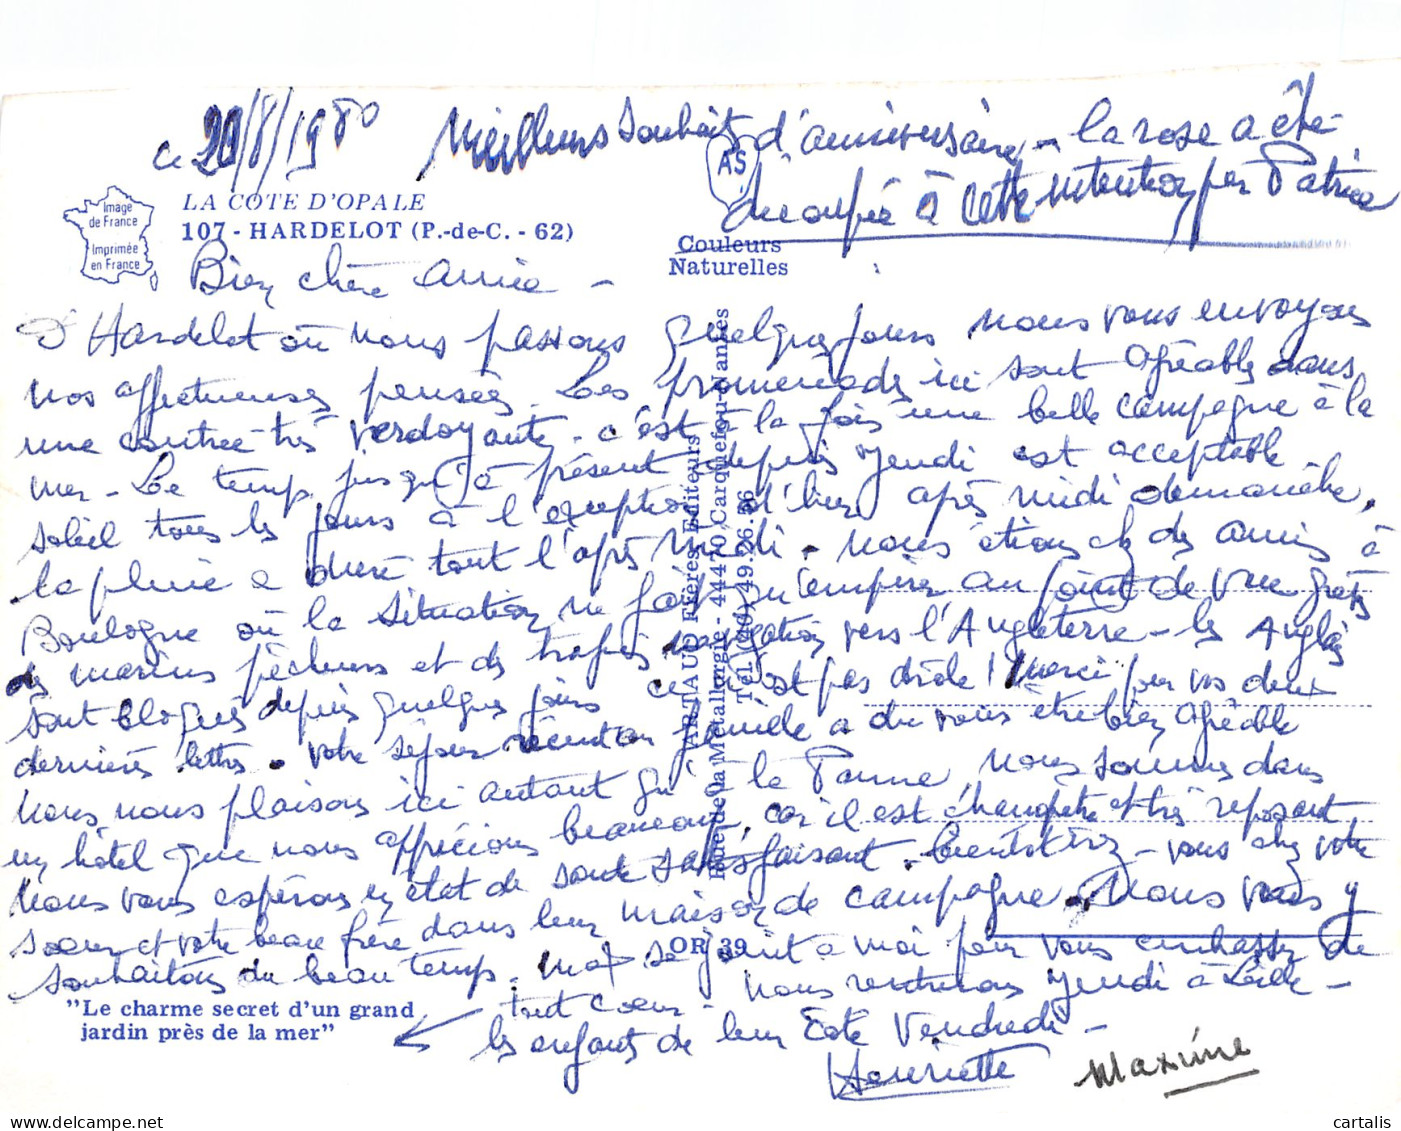 ce 20/8/1980 Meilleurs souhaits d'anniversaire - la rose a été
découpée à cette intention par Patricia
AS
Image
de France
Imprimée
en France
LA COTE D'OPALE
107 - HARDELOT (P.-de-C. - 62)
Couleurs
Naturelles
Bien chère amie -
D'Hardelot où nous passons quelques jours nous vous envoyons
nos affectueuses pensées. Les promenades ici sont agréables dans
une contrée très verdoyante - c'est à la fois une belle campagne à la
mer - Le temps jusqu'à présent depuis jeudi est acceptable -
soleil tous les jours à l'exception d'hier après midi dimanche.
la pluie a duré tout l'après midi. nous étions chez des amis à
Boulogne où la situation ne fait qu'empirer au point de vue grèves
des marins pêcheurs et des trafics navigation vers l'Angleterre - les Anglais
sont bloqués depuis quelques jours ce n'est pas drôle ! Merci pour vos deux
dernières lettres. Votre séjour réunion famille a du vous être bien agréable
Nous nous plaisons ici autant qu'à la Panne, nous sommes dans
un hôtel que nous apprécions beaucoup, car il est champêtre et très reposant
Nous vous espérons en état de santé satisfaisant. bientôt - vous chez votre
soeur et votre beau frère dans leur maison de campagne. Nous vous y
souhaitons du beau temps. Max se joint à moi pour vous embrasser de
tout coeur - Nous rentrerons jeudi à Lille -
les enfants de leur côté Vendredi -
Henriette
Maxime
"Le charme secret d'un grand
jardin près de la mer"
ARTAUD Frères Editeurs
Rue de la Métallurgie - 44470 Carquefou-Nantes
Tél. (40) 49.26.56
OR 39
cartalis